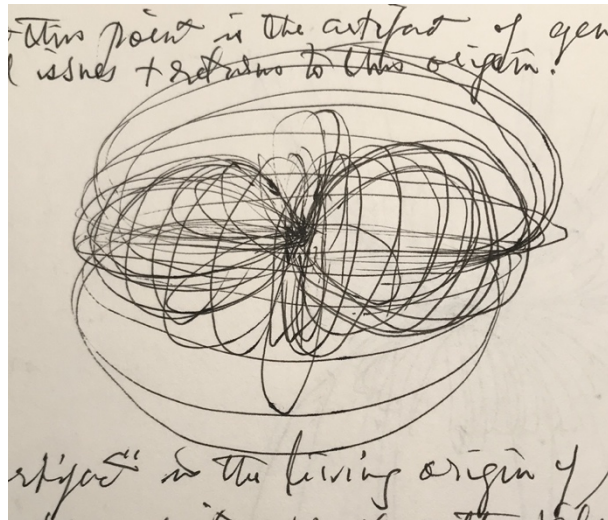 this point is the artifact of gen
issues + returns to this origin.
artifact" is the living origin of